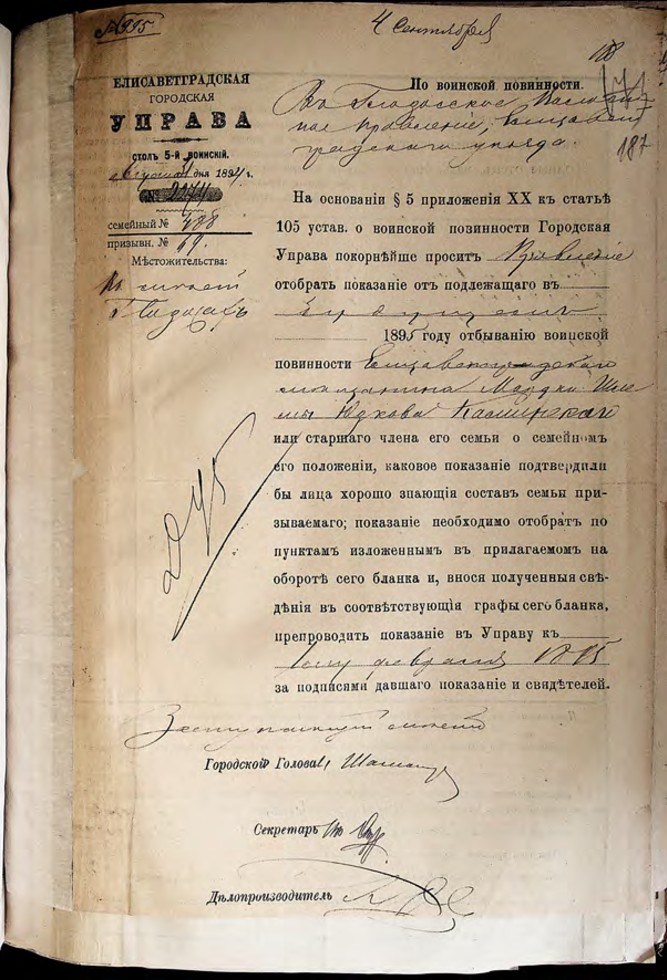 № 995
4 Сентября
188
ЕЛИСАВЕТГРАДСКАЯ
ГОРОДСКАЯ
УПРАВА
СТОЛЪ 5-й ВОИНСКІЙ.
дня 1894 г.
№ 2274
семейный № 488
призывн. № 69.
Мѣстожительства:
По воинской повинности.
Въ Глодосское Волост-
ное Правленіе, Елисавет
градскаго уѣзда.
187
На основаніи § 5 приложенія XX къ статьѣ
105 устав. о воинской повинности Городская
Управа покорнѣйше проситъ Правленіе
отобрать показаніе отъ подлежащаго въ
будущемъ
1895 году отбыванію воинской
повинности Елисаветградскаго
мѣщанина Мордки Шле
мы Юдкова Каминскаго
или старшаго члена его семьи о семейномъ
его положеніи, каковое показаніе подтвердили
бы лица хорошо знающія составъ семьи при-
зываемаго; показаніе необходимо отобрать по
пунктамъ изложеннымъ въ прилагаемомъ на
оборотѣ сего бланка и, внося полученныя свѣ-
дѣнія въ соотвѣтствующія графы сего бланка,
препроводить показаніе въ Управу къ
1ому февраля 1895
за подписями давшаго показаніе и свидѣтелей.
Заступающій мѣсто
Городской Голова
Секретарь
Дѣлопроизводитель